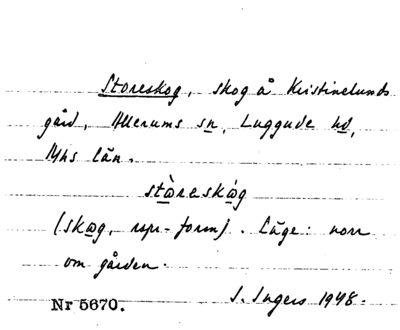 Storeskog, skog å Kristinelunds
gård, Allerums sn, Luggude hd,
Mhs län.
stòreskóg
(skog, rspr-form). Läge: norr
om gården.
S. Ingers 1948.
Nr 5670.